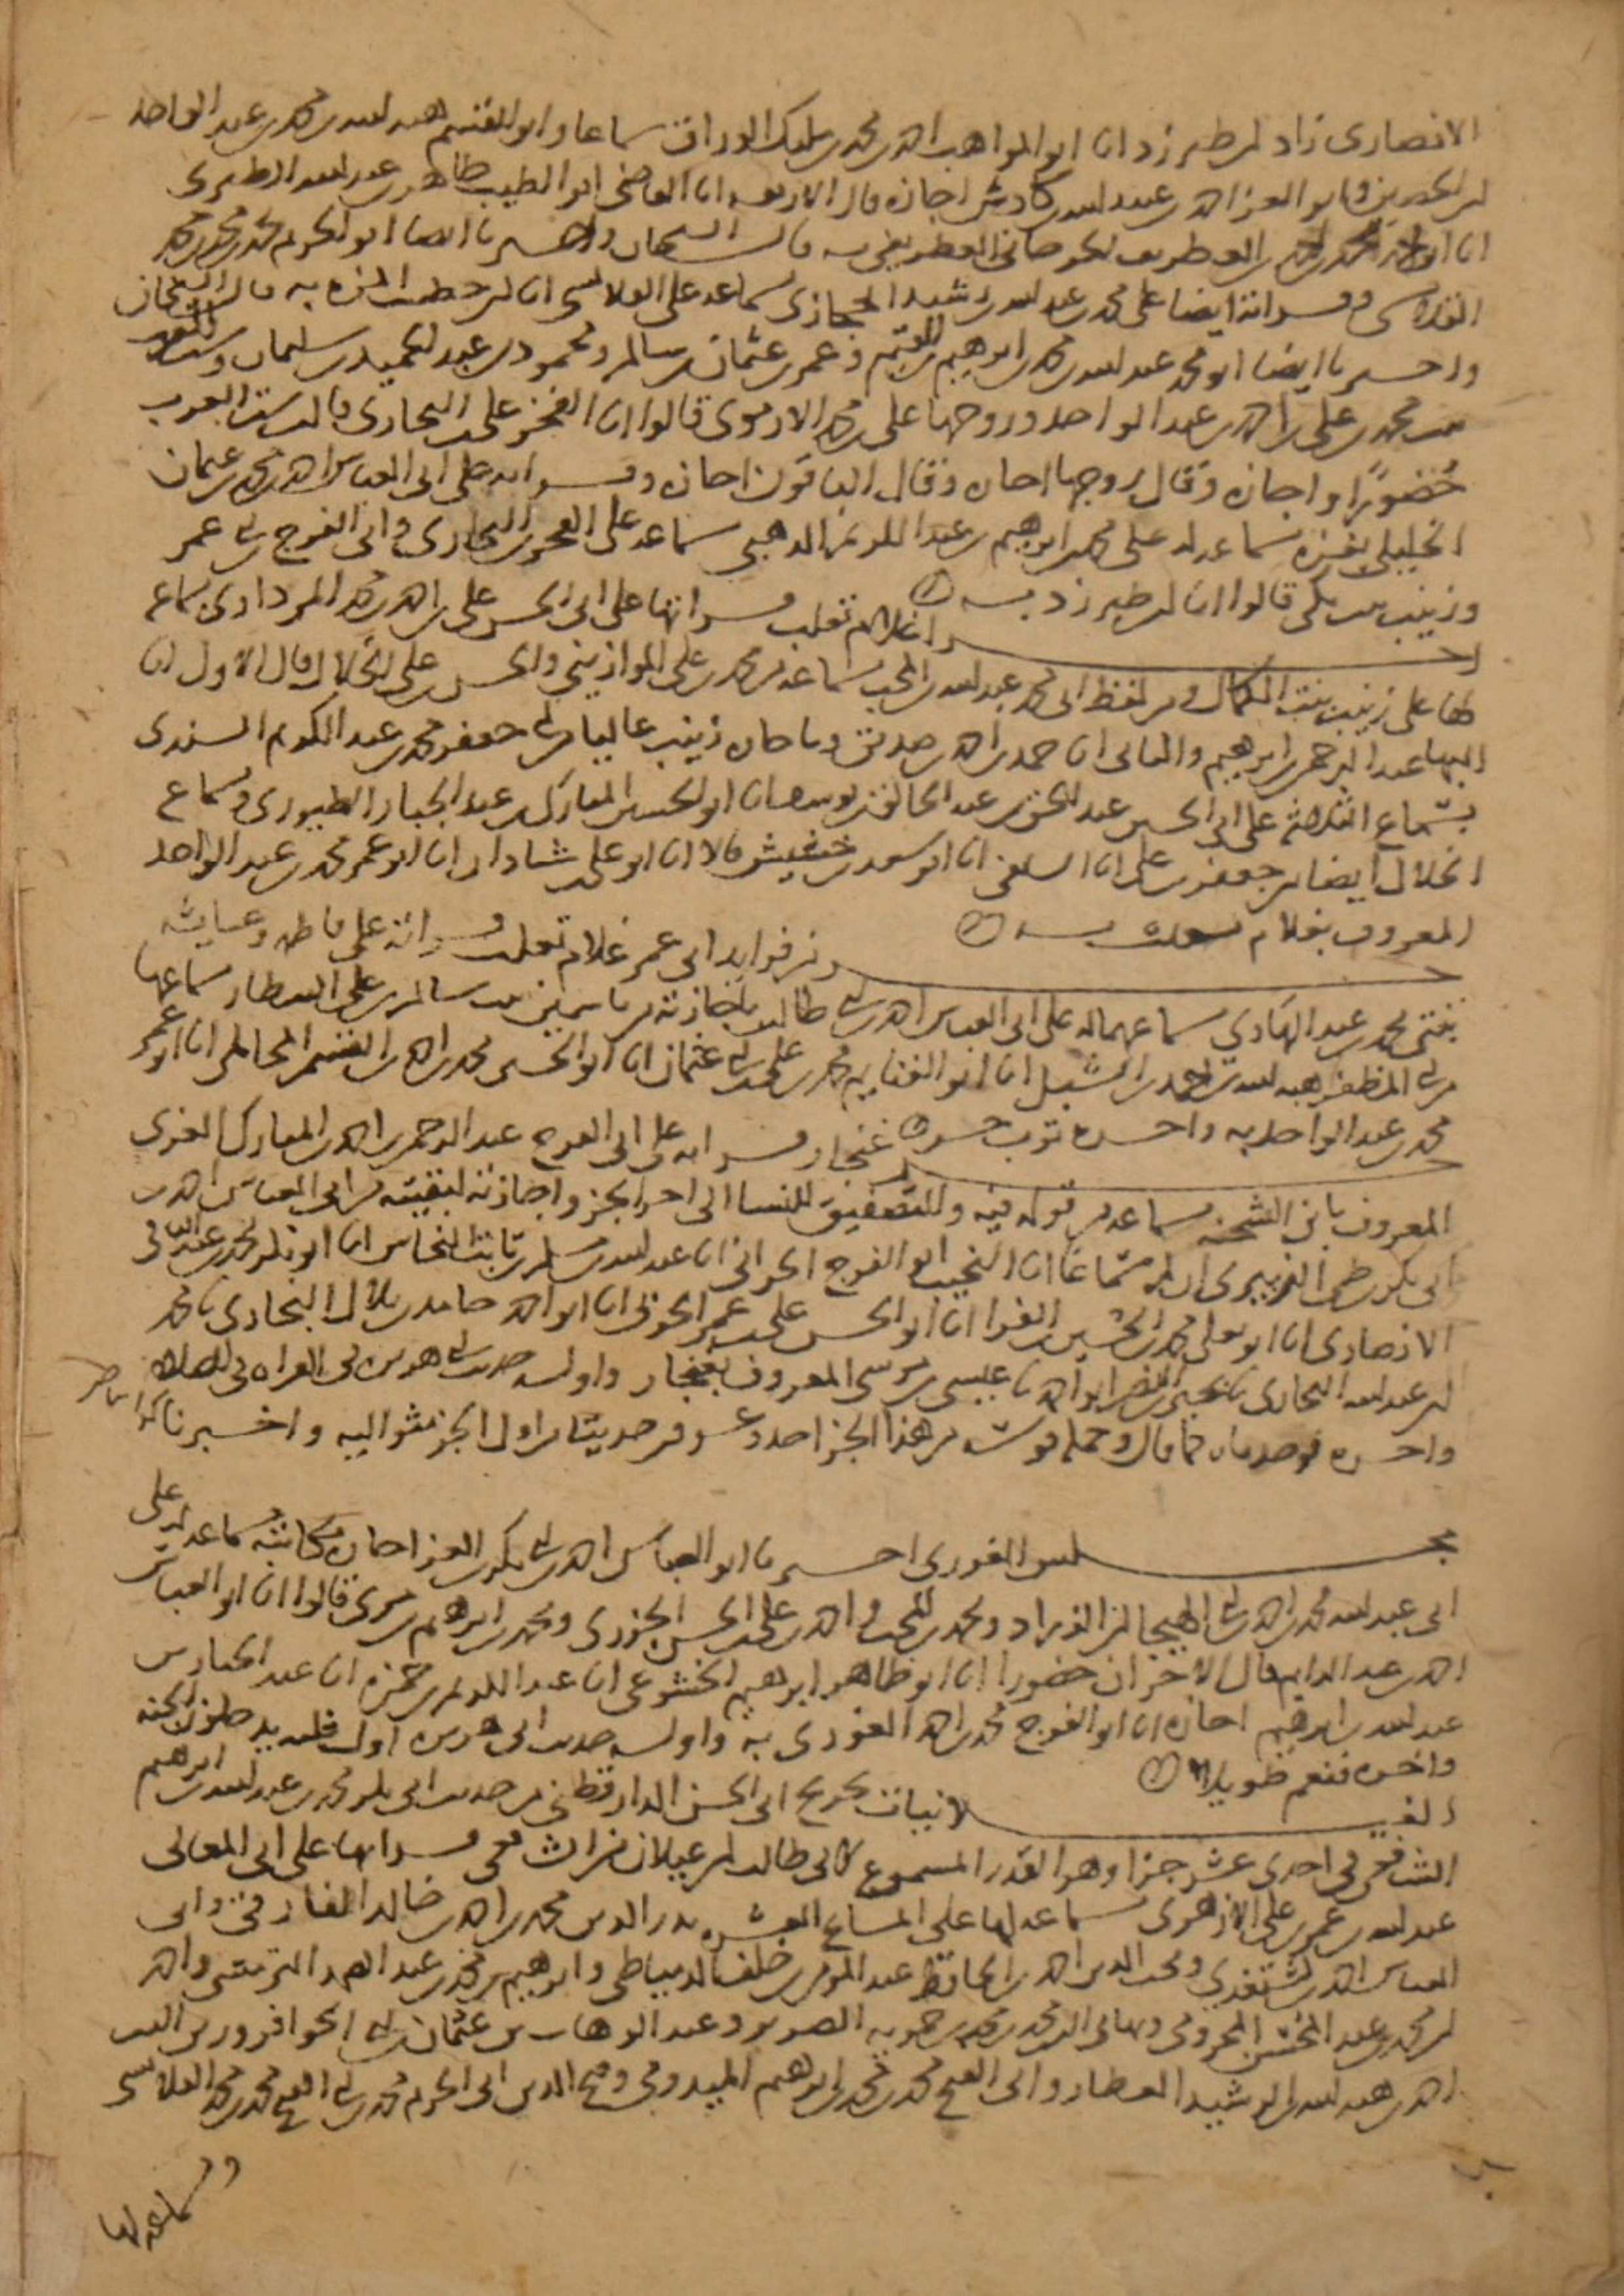 الانصارى زاد ابن طبرزد انا ابو المواهب احمد بن محمد بن ملوك الوراق سماعا وابو القسم هبه الله بن محمد بن عبد الواحد
ابن الحصين وابو العز احمد بن عبيد الله بن كادش اجازه قال الاربعه انا القاضى ابو الطيب طاهر بن عبد الله الطبرى
انا ابو احمد محمد بن احمد بن الغطريف الجرجانى الغطريفى به قال السحان واخبرنا ايضا ابو الحرم محمد بن محمد بن محمد
القلانسى وقراته ايضا على محمد بن عبد الله بن رشيد الحجازى سماعه على القلانسى انا ابن خطيب المزه به قال الشيخان
واخبرنا ايضا ابو محمد عبد الله بن محمد بن ابرهيم بن القيم وعمر بن عثمان بن سالم ومحمود بن عبد الحميد بن سليمان وست العرب
بنت محمد بن على بن احمد بن عبد الواحد وزوجها على بن محمد الارموى قالوا انا الفخر على بن البخارى قالت ست العرب
حضورًا واجازه وقال زوجها اجازه وقال الباقون اجازه وقراته على ابى العباس احمد بن محمد بن عثمان
الخليلى بغزه سماعه له على محمد بن ابرهيم بن عبد الكريم الذهبى سماعه على الفخر بن البخارى وابى الفرج بن ابى عمر
وزينب بنت مكى قالوا انا ابن طبرزد به
اخبار غلام ثعلب قراتها على ابى الحسن على بن احمد بن محمد المرداوى بسماعه
لها على زينب بنت الكمال ومن لفظ ابى محمد عبد الله بن المحب بسماعه من محمد بن على الموازينى والحسن بن على الخلال قال الاول انا
البها عبد الرحمن بن ابرهيم والثانى انا حمد بن احمد بن صديق وباجازه زينب عاليا من ابى جعفر محمد بن عبد الكريم السيدى
بسماع الثلاثه على ابى الحسين عبد الحق بن عبد الخالق بن يوسف انا ابو الحسين المبارك بن عبد الجبار الطيورى وسماع
الخلال ايضا من جعفر بن على انا السلفى انا ابو سعد بن خشيش قالا انا ابو على بن شاذان انا ابو عمر محمد بن عبد الواحد
المعروف بغلام ثعلب به
جزء من فوايد ابى عمر غلام ثعلب قراته على فاطمه وعايشه
بنتى محمد بن عبد الهادى سماعهما له على ابى العباس احمد بن ابى طالب باجازته من ياسمين بنت سالم بن على البيطار سماعها
من ابى المظفر هبه الله بن احمد بن الشبلى انا ابو الغنايم محمد بن على بن ابى عثمان انا ابو الحسن محمد بن احمد بن القسم المحاملى انا ابو عمر
محمد بن عبد الواحد به واخره ثوب خز
جزء غنجار قراته على ابى الفرج عبد الرحمن بن احمد بن المبارك الغزى
المعروف بابن الشحنه سماعه من قوله فيه والتصفيق للنسا الى اخر الجز واجازته لبقيته من ابى العباس احمد بن
ابى بكر بن طى الزبيرى ان لم يكن سماعا انا النجيب ابو الفرج الحرانى انا عبد الله بن مسلم بن ثابت النحاس انا ابو بكر محمد بن عبد الباقى
الانصارى انا ابو يعلى محمد بن الحسين بن الفرا انا ابو الحسن على بن عمر الحربى انا ابو احمد حامد بن بلال البخارى نا محمد
ابن عبد الله البخارى نا يحيى بن النضر ابو احمد نا عيسى بن موسى المعروف بغنجار واوله حديث ابى هريره فى القراه فى الصلاه
واخره من هذا الجز احد وعشرون حديثا من اول الجز اليه واخبرنا
مجلس الفورى اخبرنا ابو العباس احمد بن ابى بكر بن العز اجازه مكاتبه سماعه له على
ابى عبد الله محمد بن احمد بن ابى الهيجا بن الزراد ومحمد بن المحب واحمد بن على بن الحسن الجزرى ومحمد بن ابرهيم بن مرى قالوا انا ابو العباس
احمد بن عبد الدايم قال الاخران حضورا انا ابو طاهر ابرهيم الخشوعى انا عبد الكريم بن حمزه انا عبد الجبار بن
عبد الله بن ابرهيم اجازه انا ابو الفرج محمد بن احمد الفورى به واوله حديث ابى هريره اول ثله يدخلون الجنه
واخره فنعم طويلا
الغيلانيات تخريج ابى الحسن الدارقطنى من حديث ابى بكر محمد بن عبد الله بن ابرهيم
الشافعى فى احدى عشر جزا وهو القدر المسموع لابى طالب ابن غيلان من الشافعى قراتها على ابى المعالى
عبد الله بن عمر بن على الازهرى سماعه لها على المشايخ العشره بدر الدين محمد بن احمد بن خالد الفارقى وابى
العباس احمد بن كشتغدى ومحب الدين احمد بن الحافظ عبد المومن بن خلف الدمياطى وابرهيم بن محمد بن عبد الصمد التزمنتى واحمد
ابن محمد بن عبد المحسن المخزومى وابى محمد بن محمد بن حمويه الضرير وعبد الوهاب بن عثمان بن ابى الحوافر وزين الدين
احمد بن هبه الله بن الرشيد العطار وابى الفتح محمد بن محمد بن ابرهيم الميدومى وفتح الدين ابى الحرم محمد بن ابى الفتح محمد بن محمد القلانسى
سماعه لها